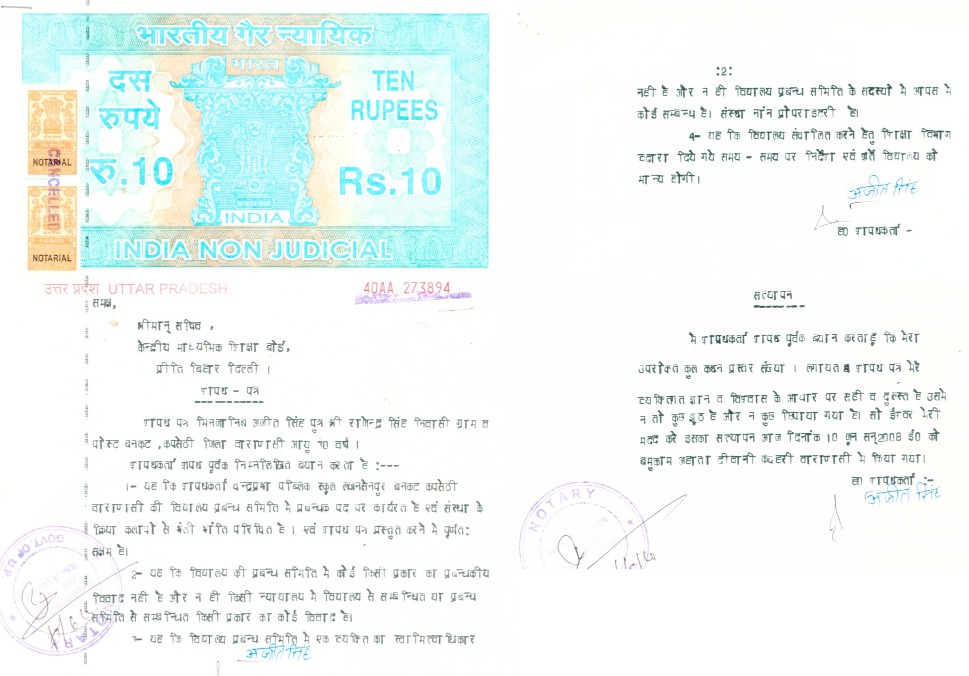 भारतीय गैर न्यायिक
भारत
दस
रुपये
रु.10
TEN
RUPEES
Rs.10
INDIA
INDIA NON JUDICIAL
NOTARIAL
NOTARIAL
CANCELLED
उत्तर प्रदेश UTTAR PRADESH
40AA 273894
समक्ष,
श्रीमान् सचिव ,
केन्द्रीय माध्यमिक शिक्षा बोर्ड,
प्रीति बिहार दिल्ली ।
शपथ - पत्र
शपथ पत्र मिनजानिब अजीत सिंह पुत्र श्री राजेन्द्र सिंह निवासी ग्राम व
पोस्ट बनकट ,कपसेठी जिला वाराणसी आयु 30 वर्ष ।
शपथकर्ता शपथ पूर्वक निम्नलिखित बयान करता है :---
1- यह कि शपथकर्ता चन्द्रप्रभा पब्लिक स्कूल लक्षनसेनपुर बनकट कपसेठी
वाराणसी की विद्यालय प्रबन्ध समिति मे प्रबन्धक पद पर कार्यरत है एवं संस्था के
क्रिया कलापो से भली भांति परिचित है । एवं शपथ पत्र प्रस्तुत करने मे पूर्णत:
सक्षम है।
2- यह कि विद्यालय की प्रबन्ध समिति मे कोई किसी प्रकार का प्रबन्धकीय
विवाद नही है और न ही किसी न्यायालय मे विद्यालय से सम्बन्धित या प्रबन्ध
समिति से सम्बन्धित किसी प्रकार का कोई विवाद है।
3- यह कि विद्यालय प्रबन्ध समिति मे एक व्यक्ति का स्वामित्वाधिकार
अजीत सिंह
NOTARY
GOVT. OF U.P.
:2:
नही है और न ही विद्यालय प्रबन्ध समिति के सदस्यो मे आपस मे
कोई सम्बन्ध है। संस्था नान प्रोपराइटरी है।
4- यह कि विद्यालय संचालित करने हेतु शिक्षा विभाग
द्वारा दिये गये समय - समय पर निर्देश एवं शर्ते विद्यालय को
मान्य होगी ।
अजीत सिंह
ह0 शपथकर्ता -
सत्यापन
मै शपथकर्ता शपथ पूर्वक ब्यान करताहू कि मेरा
उपरोक्त कुल कथन प्रस्तर संख्या । लगायत 4 शपथ पत्र मेरे
व्यक्तिगत ज्ञान व विश्वास के आधार पर सही व दुरुस्त है उसमे
न तो कुछ झूठ है और न कुछ छिपाया गया है। सो ईश्वर मेरी
मदद करे इसका सत्यापन आज दिनांक 10 जून सन्2008 ई0 को
बमुकाम अहाता दीवानी कचहरी वाराणसी मे किया गया।
ह0 शपथकर्ता :-
अजीत सिंह
NOTARY